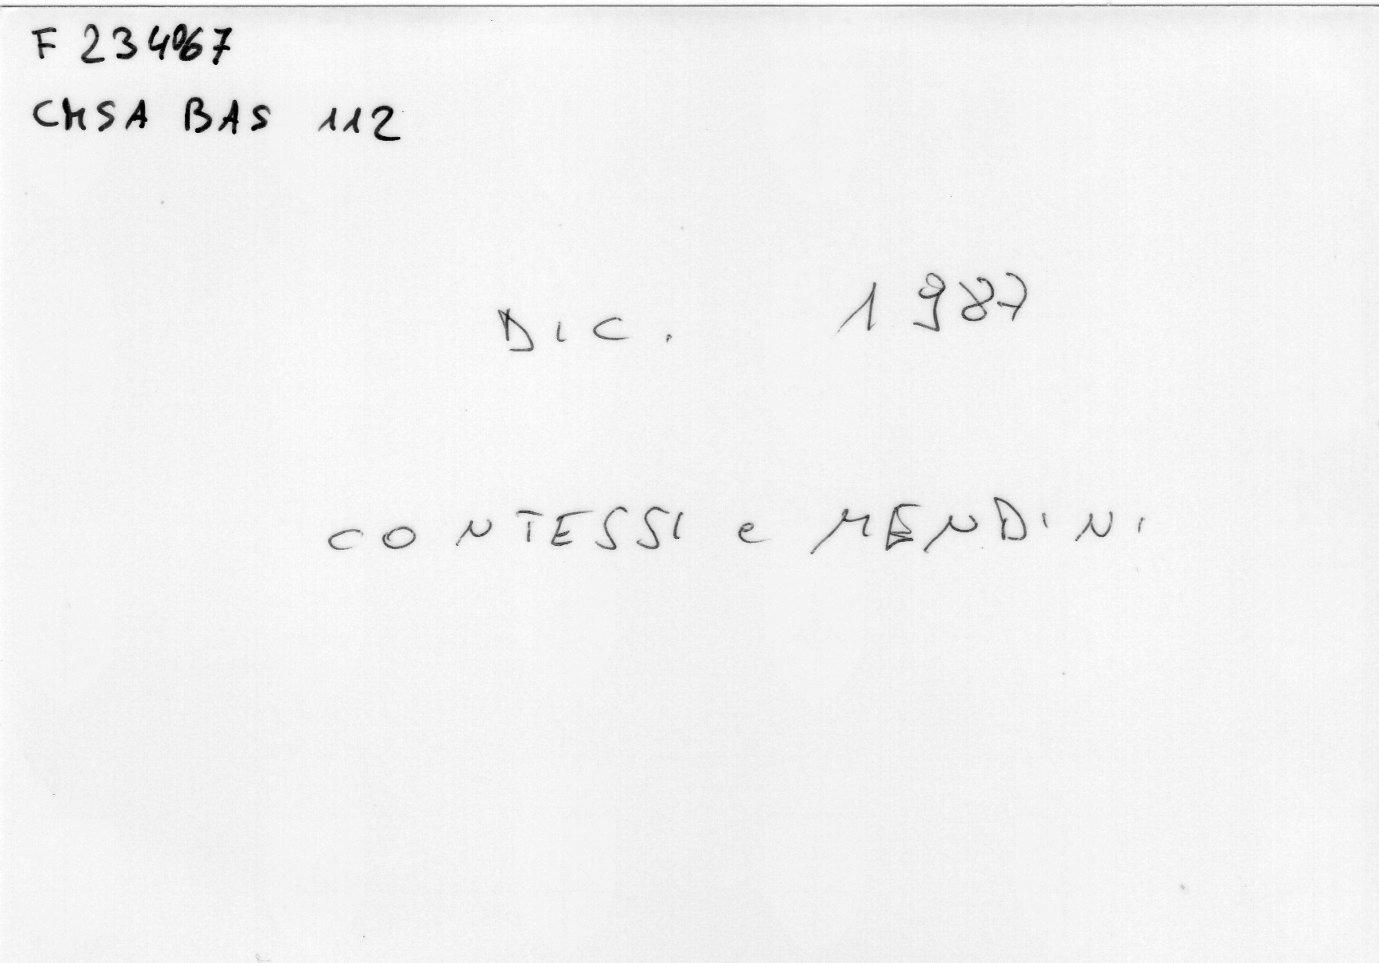 F 234067
CMSA BAS 112
DIC. 1987
CONTESSI e MENDINI